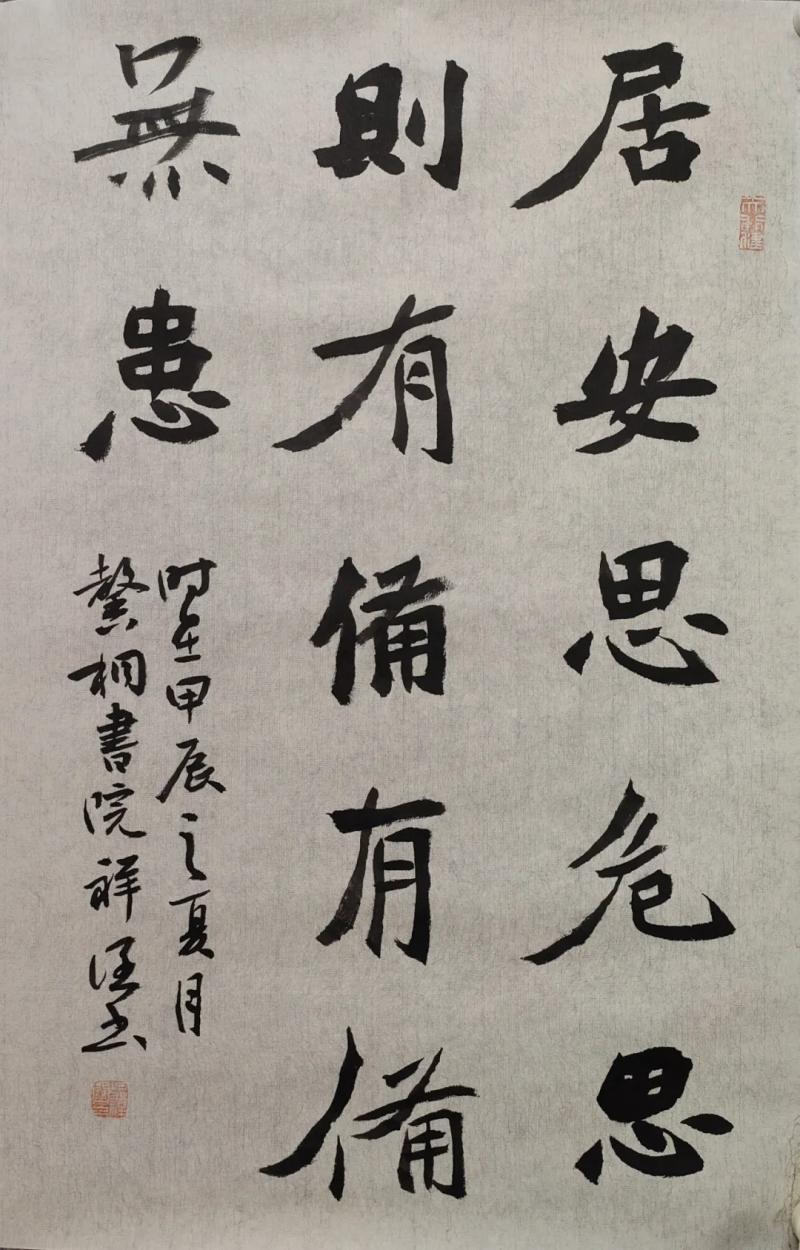 居安思危思
則有備有備
無患
时在甲辰之夏月
桐書院祥 书